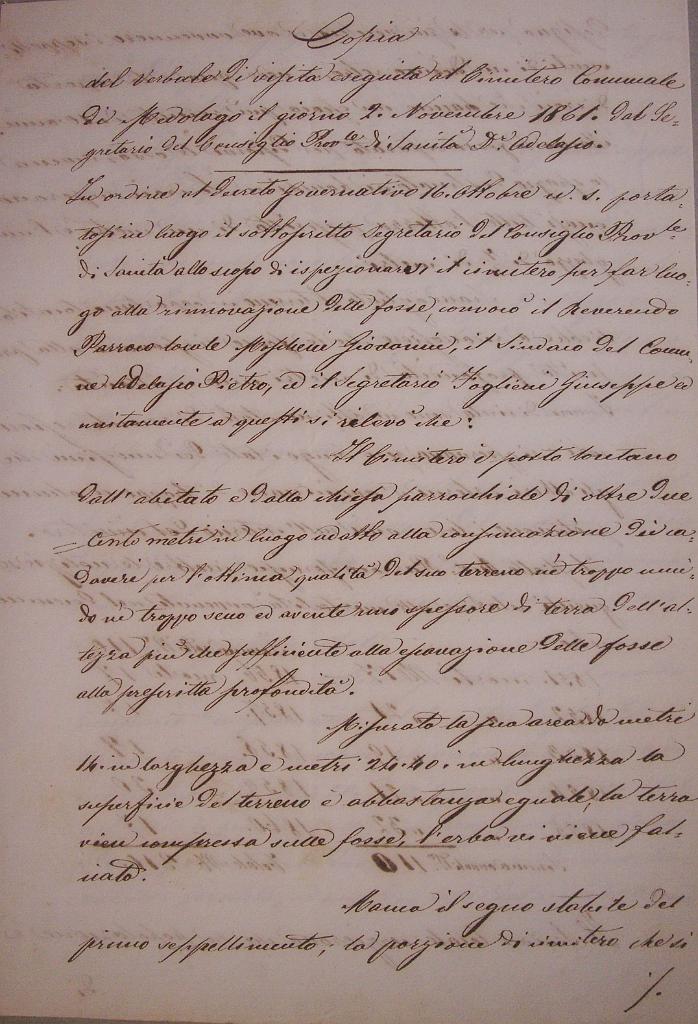 Copia
del Verbale di visita eseguita al Cimitero Comunale
di Medolago il giorno 2. Novembre 1861. dal Se-
gretario del Consiglio Prov.le di Sanità D.r Adelasio.
In ordine al Decreto Governativo 16. Ottobre u. s. porta-
tosi in luogo il sottoscritto Segretario del Consiglio Prov.le
di Sanità allo scopo di ispezionarvi il cimitero per far luo-
go alla rinnovazione delle fosse, convocò il Reverendo
Parroco locale Moscheni Giovanni, il Sindaco del Comu-
ne Adelasio Pietro, ed il Segretario Foglieni Giuseppe ed
unitamente a questi si rilevò che:
Il Cimitero è posto lontano
dall'abitato e dalla chiesa parrocchiale di oltre due
= cento metri in luogo adatto alla consumazione dei ca-
daveri per l'ottima qualità del suo terreno nè troppo umi-
do nè troppo secco ed avente uno spessore di terra dell'al-
tezza più che sufficiente alla escavazione delle fosse
alla prescritta profondità.
Misurato la sua area da metri
14. in larghezza e metri 24.40. in lunghezza la
superficie del terreno è abbastanza eguale, la terra
vien compressa sulle fosse, l'erba vi viene fal-
ciata.
Manca il segno statute del
primo seppellimento; la porzione di cimitero che si
./.